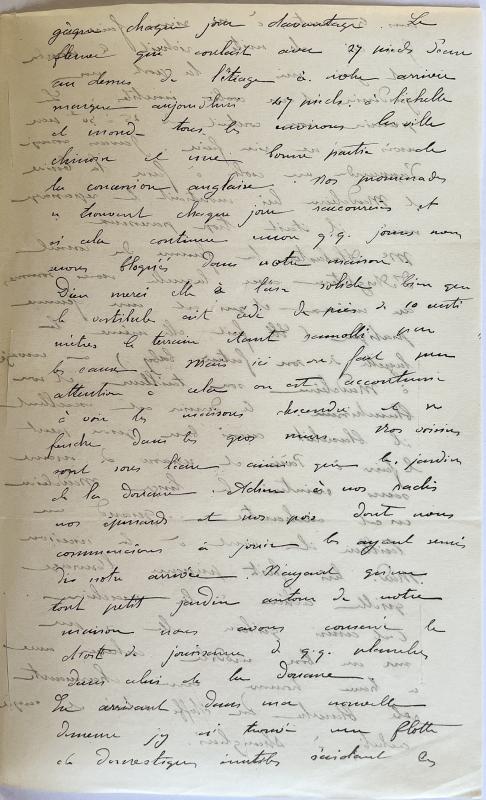 gagne chaque jour davantage. Le
fleuve qui coulait avec 27 pieds d'eau
au dessus de l'étiage à notre arrivée
marque aujourd'hui 47 pieds à l'échelle
et inonde tous les environs la ville
chinoise et une bonne partie de
la concession anglaise. Nos promenades
se trouvent chaque jour raccourcies et
si cela continue encore q.q. jours nous
serons bloqués dans notre maison.
Dieu merci elle à l'air solide bien que
le vestibule ait cédé de près de 10 centi
mètres le terrain étant ramolli par
les eaux. Mais ici on ne fait pas
attention à cela on est accoutumé
à voir les maisons descendre et se
fendre dans les gros murs. Nos voisins
sont sous l'eau ainsi que le jardin
de la douane. Adieu à nos radis
nos épinards et nos pois dont nous
commencions à jouir les ayant semés
dès notre arrivée. N'ayant qu'un
tout petit jardin autour de notre
maison nous avons conservé le
droit de jouissance de q.q. planches
dans celui de la douane.
En arrivant dans ma nouvelle
demeure j'y ai trouvé une flotte
de domestiques inutiles s'aidant les